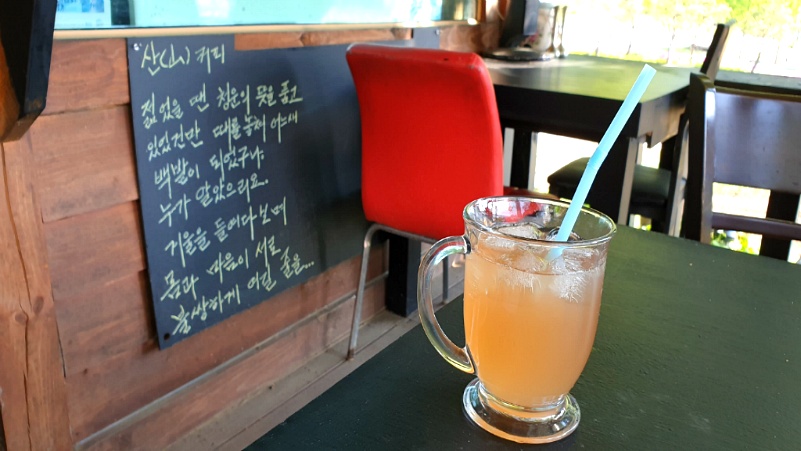 산(山) 커피
젊었을 땐 청운의 뜻을 품고
있었건만 때를 놓쳐 어느새
백발이 되었구나.
누가 알았으리요.
거울을 들여다 보며
몸과 마음이 서로
불쌍하게 여길 줄을...